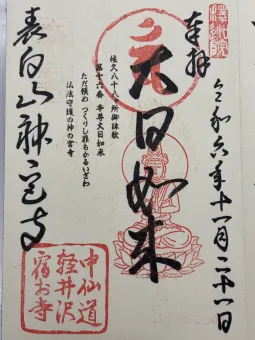 奉拝
令和六年十一月二十一日
佐久八十八ヶ所御詠歌
第十六番 本尊大日如来
ただ頼め つくりし罪もかるいざわ
法法守護の神の宮寺
大日如来
表白山神宮寺
中仙道
軽井沢
宿お寺